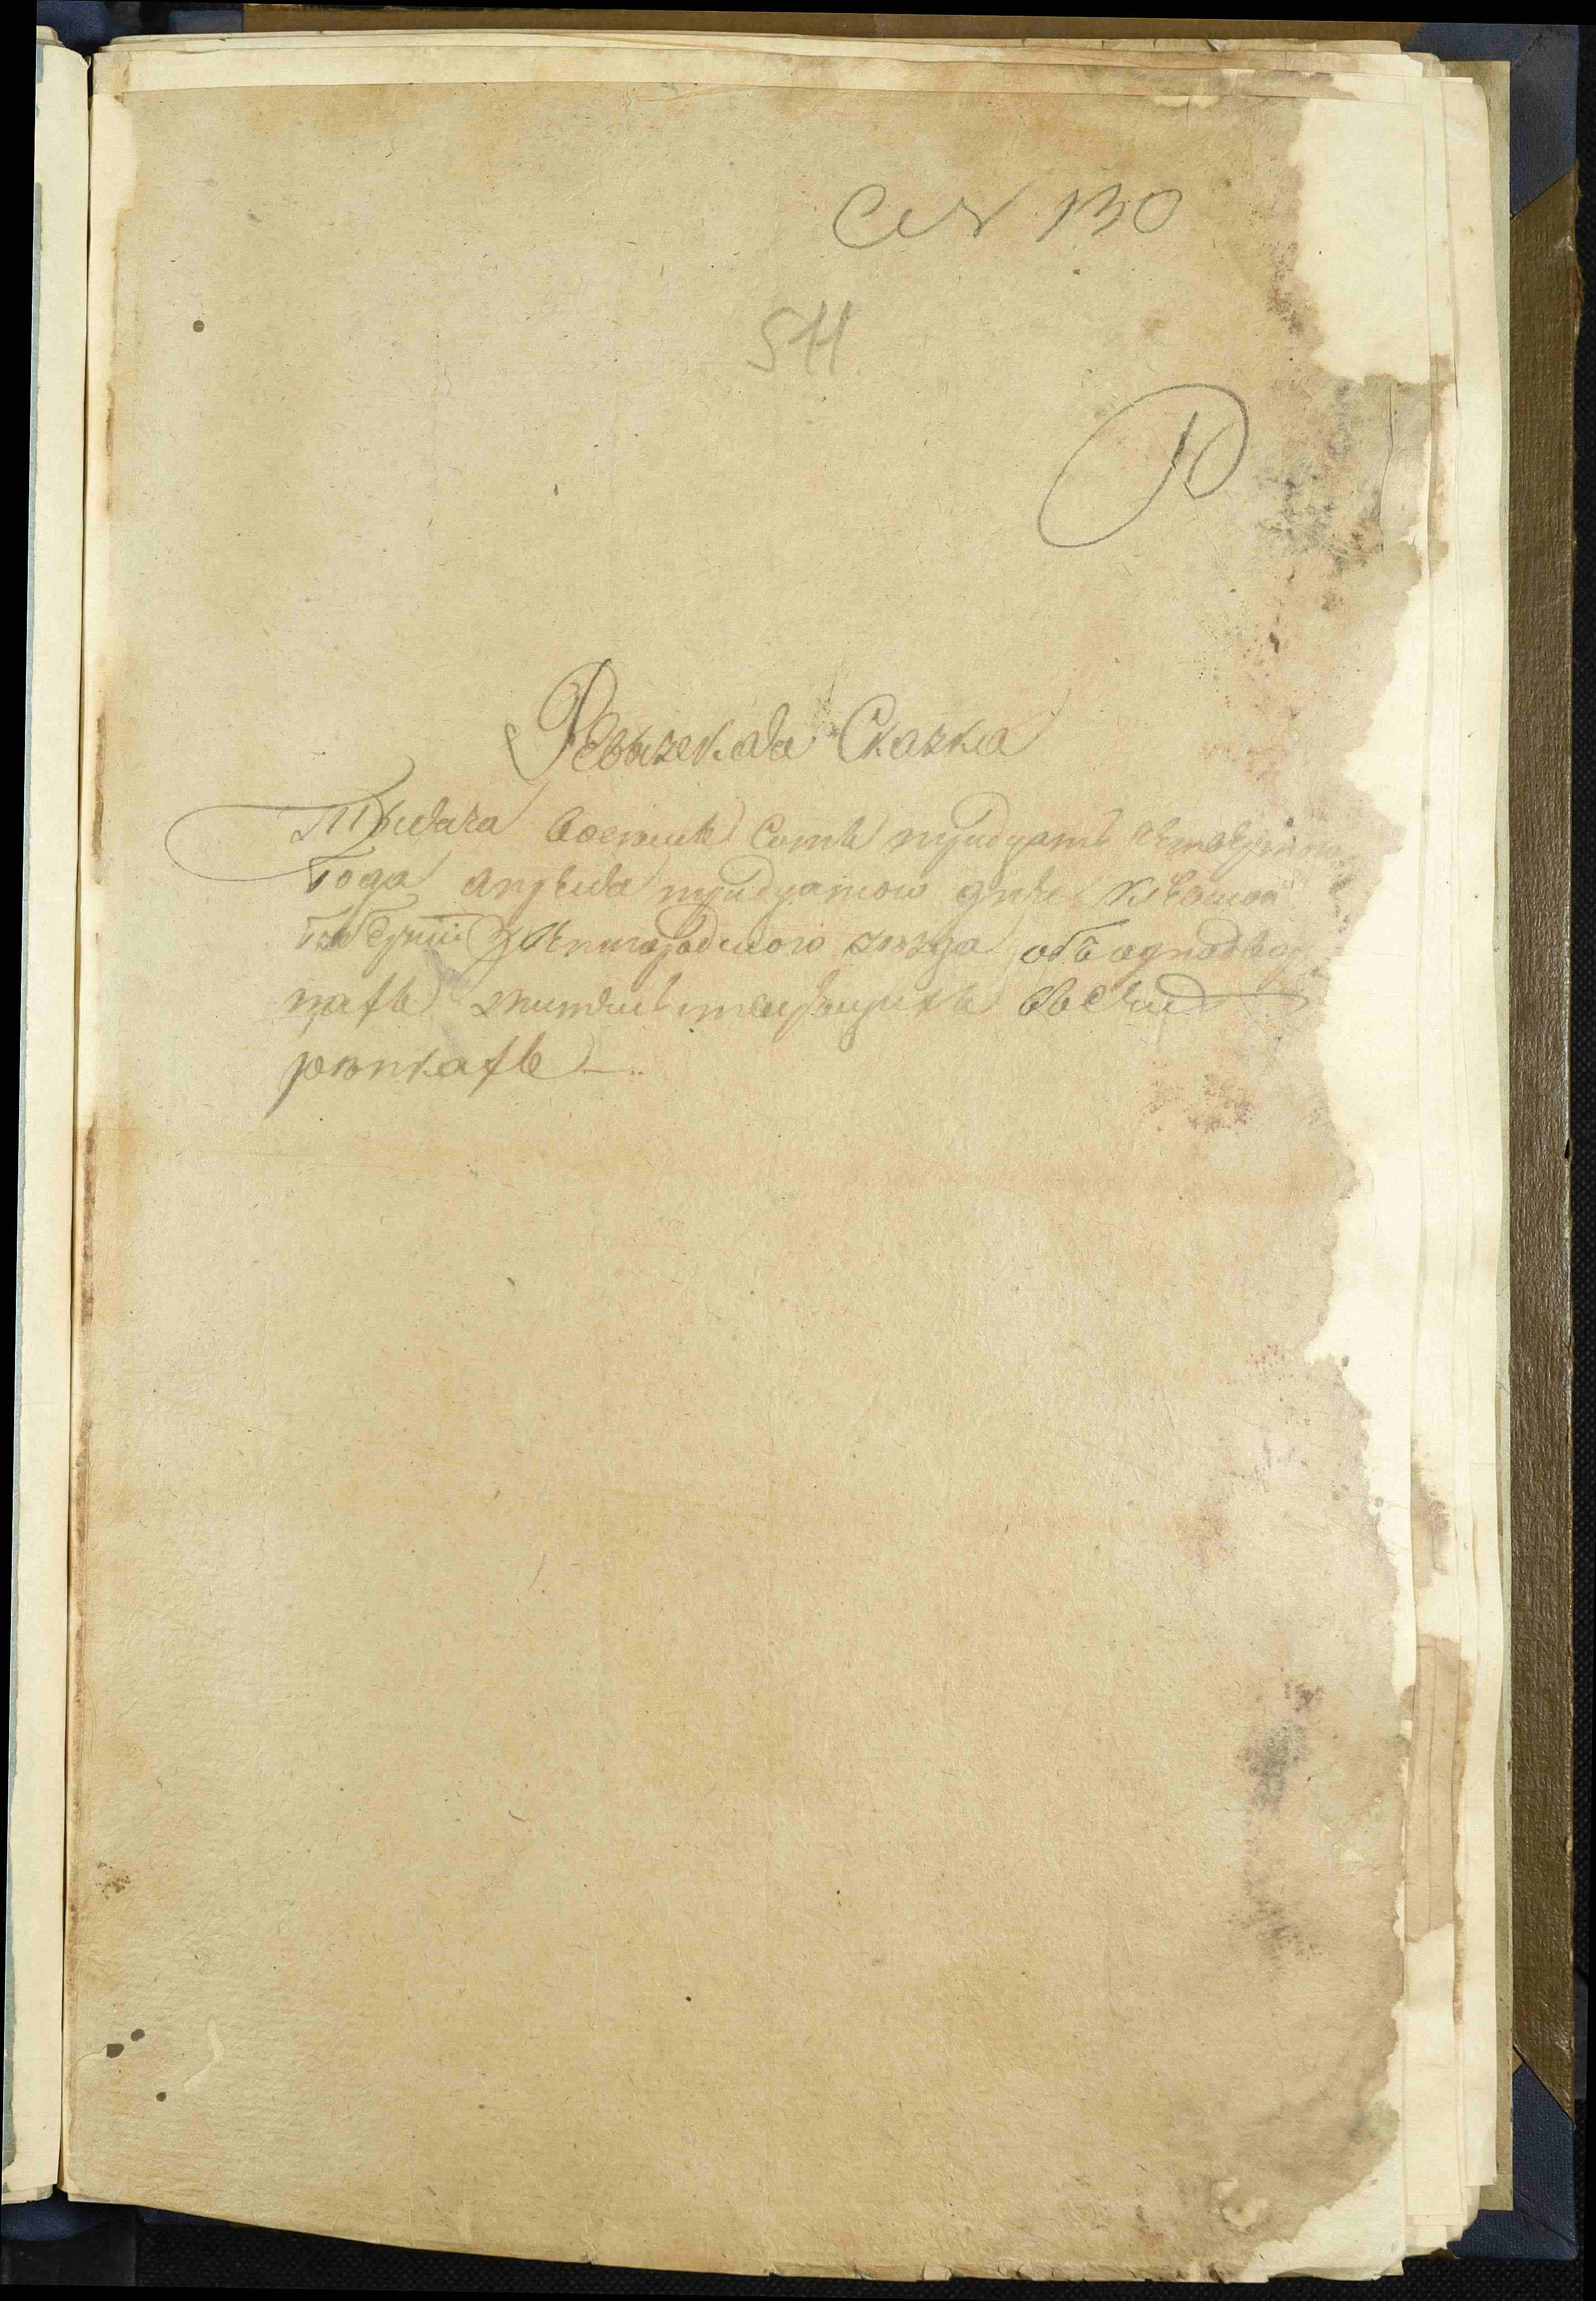 130
541
Ревизская Сказка
Тысяча восемь сотъ тридцать четвертого
Года апреля тридцатого дня Кіевской
Губерніи Звенигородского уезда объ однодвор
цахъ жительствующихъ въ селе